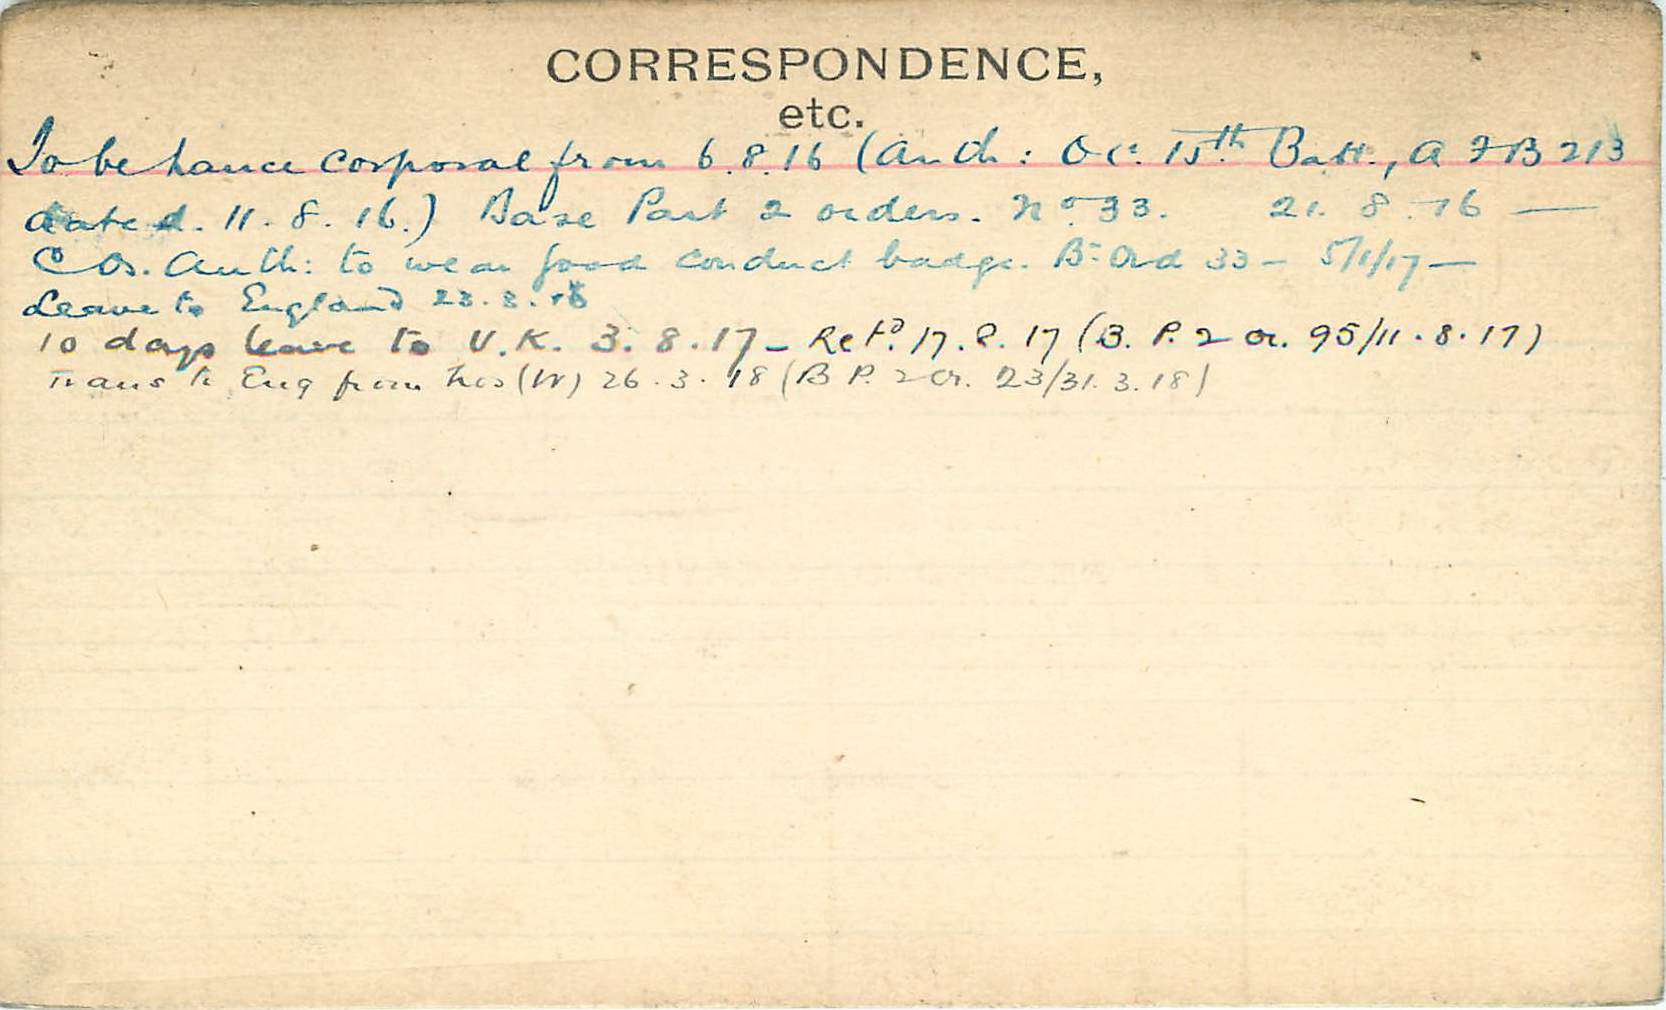 CORRESPONDENCE,
etc.
To be Lance Corporal from 6.8.16 (Auth: O.C. 15th Batt., A F B 213
dated. 11.8.16.) Base Part 2 orders. No 33. 21.8.16 —
C Os. Auth: to wear good conduct badge. Bn Ord 33 - 5/1/17 —
Leave to England 23.3.16
10 days leave to U.K. 3.8.17 - Retd. 17.8.17 (B.P. 2 or. 95/11.8.17)
Trans to Eng from (W) 26.3.18 (B P. 2 or. 23/31.3.18)